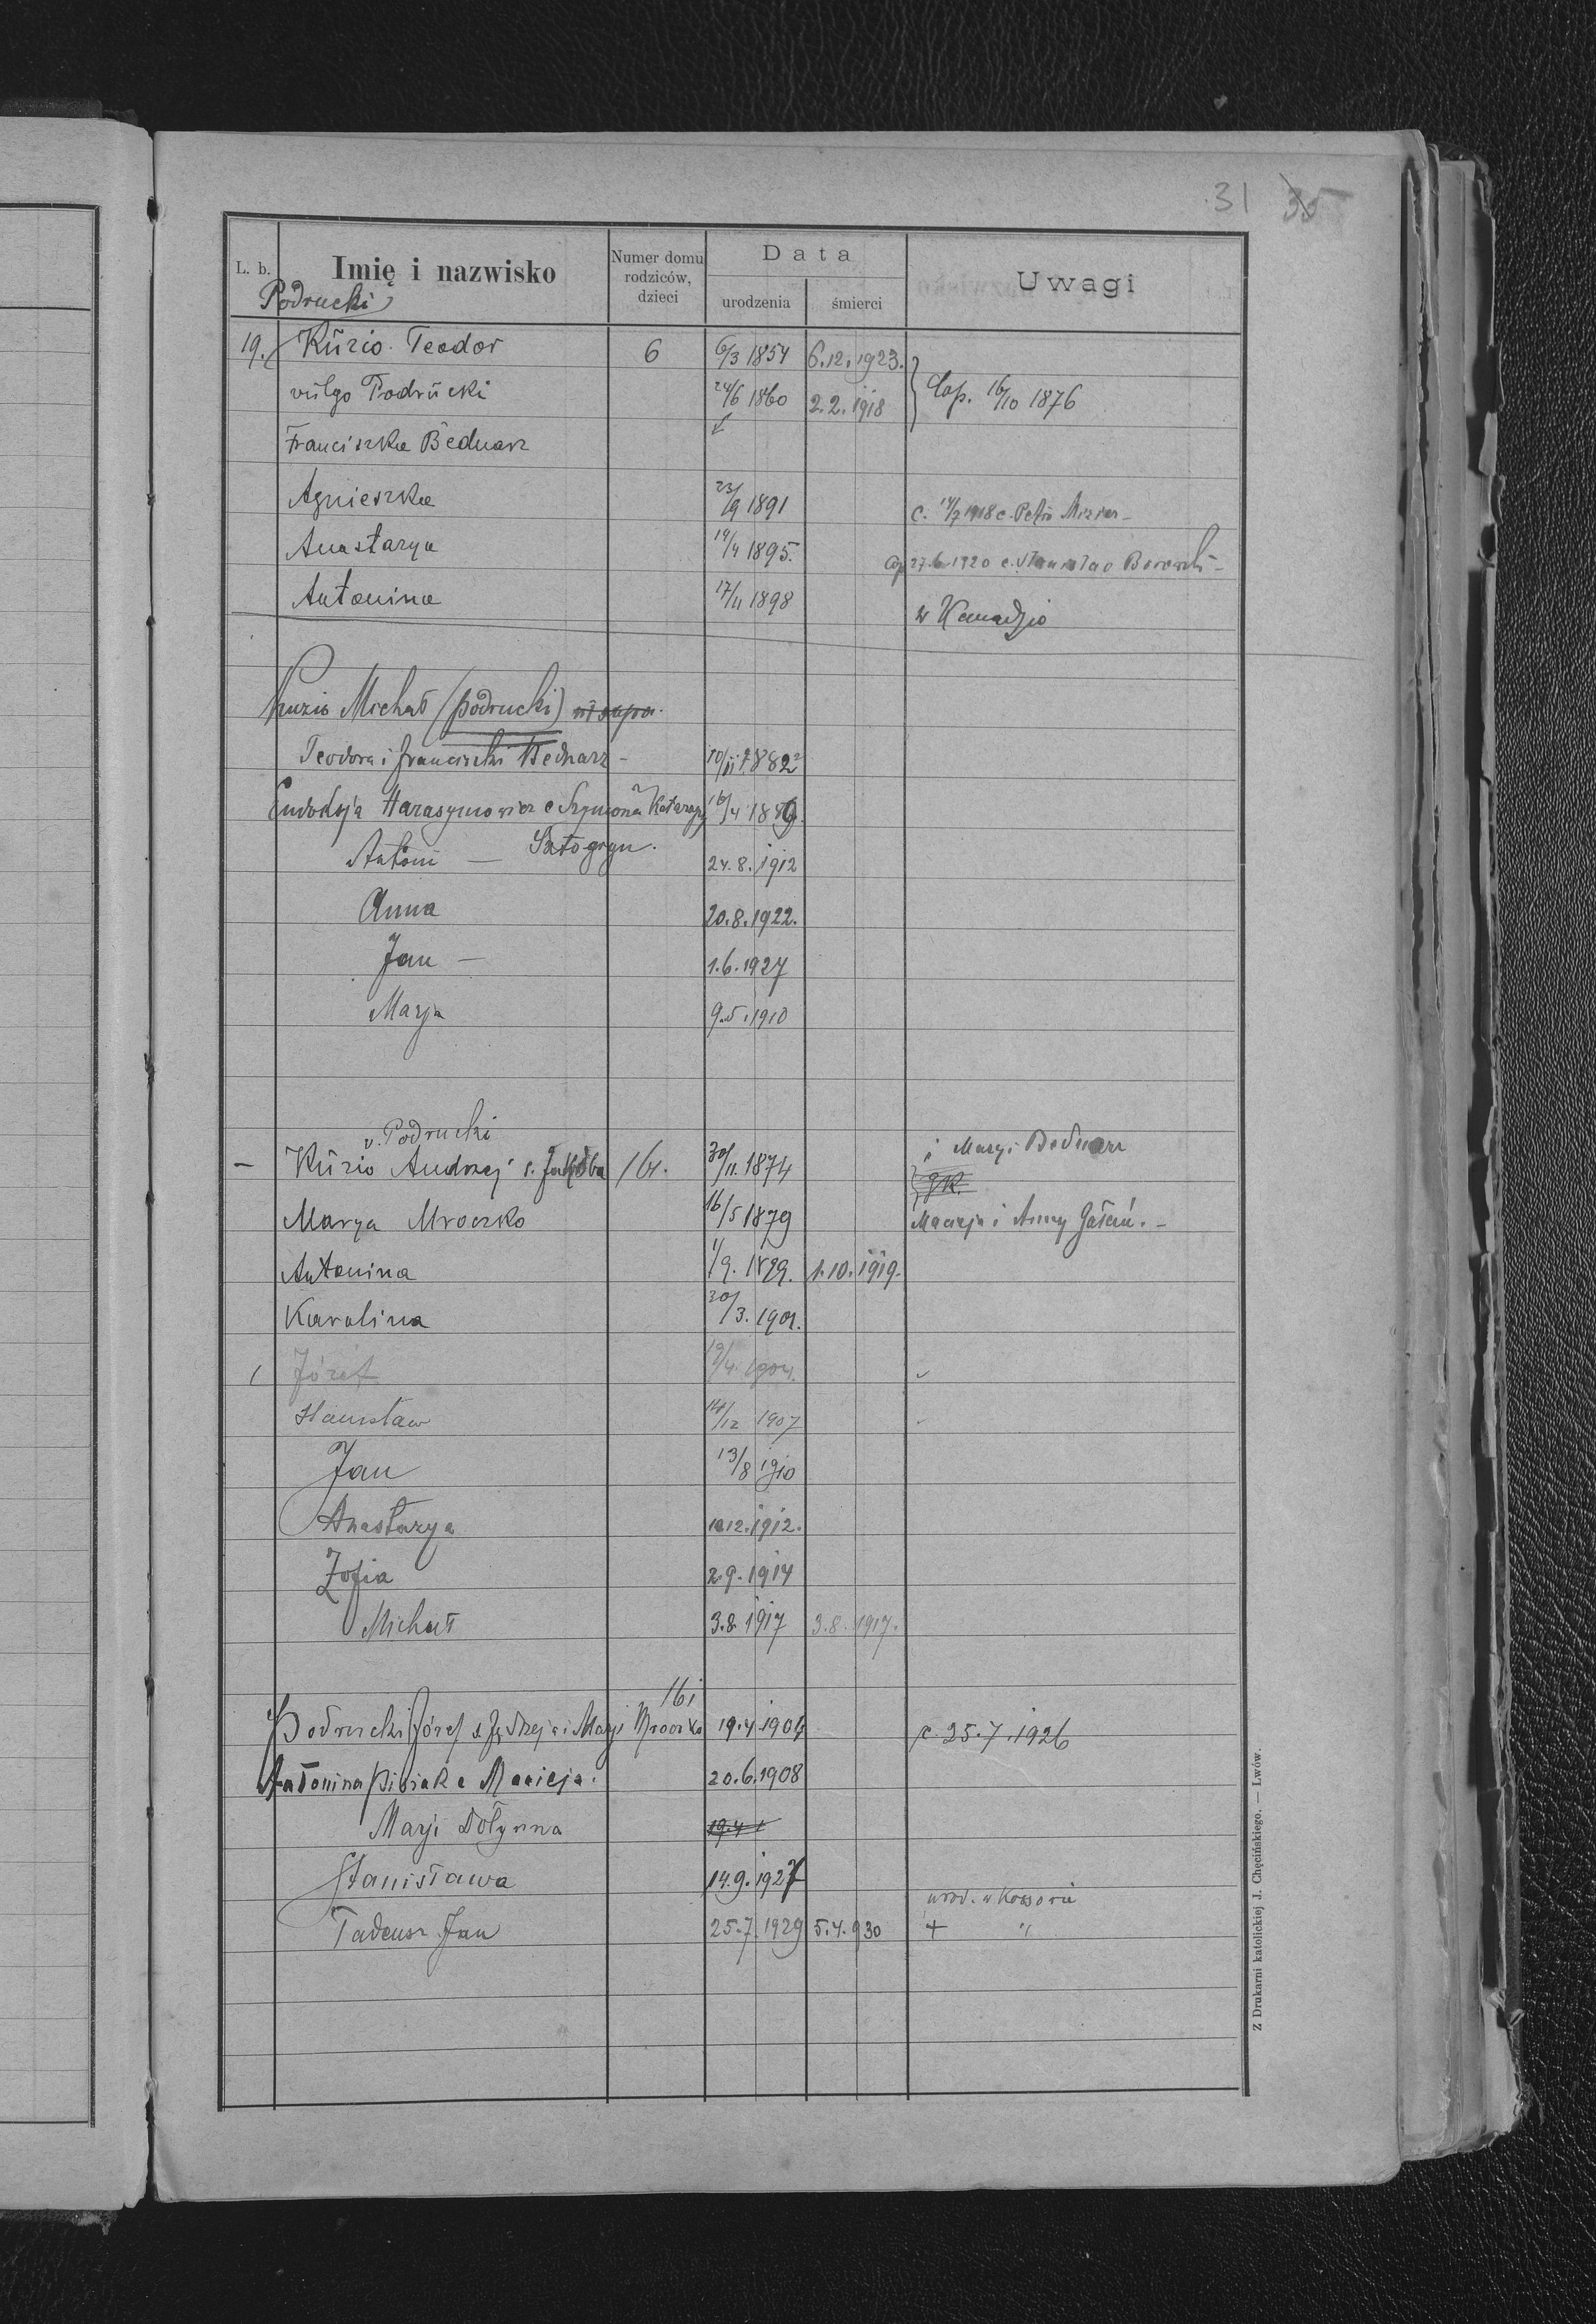 31 35
L. b. Imię i nazwisko Numer domu rodziców, dzieci Data urodzenia śmierci Uwagi
Podrucki
19. Kuzio Teodor 6 6/3 1854 6.12.1923.
vulgo Podrucki 24/6 1860 2.2.1918 Cop. 16/10 1876
Franciszka Bednarz
Agnieszka 23/9 1891 c. 14/7 1918 c. Petro
Anastazya 19/4 1895. Cop 27.6.1920 c. Stanislao Borowski -
Antonina 17/11 1898 w Kanadzie
Kuzio Michał (Podrucki)
Teodora i Franciszki Bednarz - 10/11 1882
Eudoksja Harasymowicz c Szymona Katarzyny 16/4 1889.
Antoni — 24.8.1912
Anna 20.8.1922.
Jan — 1.6.1927
Marja 9.5.1910
v. Podrucki i Maryi Bednarz
— Kuzio Andrzej s. Jakóba 161. 30/11. 1874
Marya Mroczko 16/5 1879 Macieja i Anny
Antonina 1/9. 1899. 1.10.1919.
Karolina 30/3. 1901.
Józef 19/4. 1904.
Stanisław 14/12 1907
Jan 13/8 1910
Anastazya 10.12.1912.
Zofia 2.9.1914
Michał 3.8.1917 3.8.1917.
161
Podrucki Józef s. Jędrzeja i Marji Mroczko 19.4.1904 c. 25.7.1926
Antonina Pisiak c Macieja. 20.6.1908
Marji Dołynna 19.4 1
Stanisława 14.9.1927
urod. w Kossowie
Tadeusz Jan 25.7.1929 5.4.930 + "
Z Drukarni katolickiej J. Chęcińskiego. — Lwów.